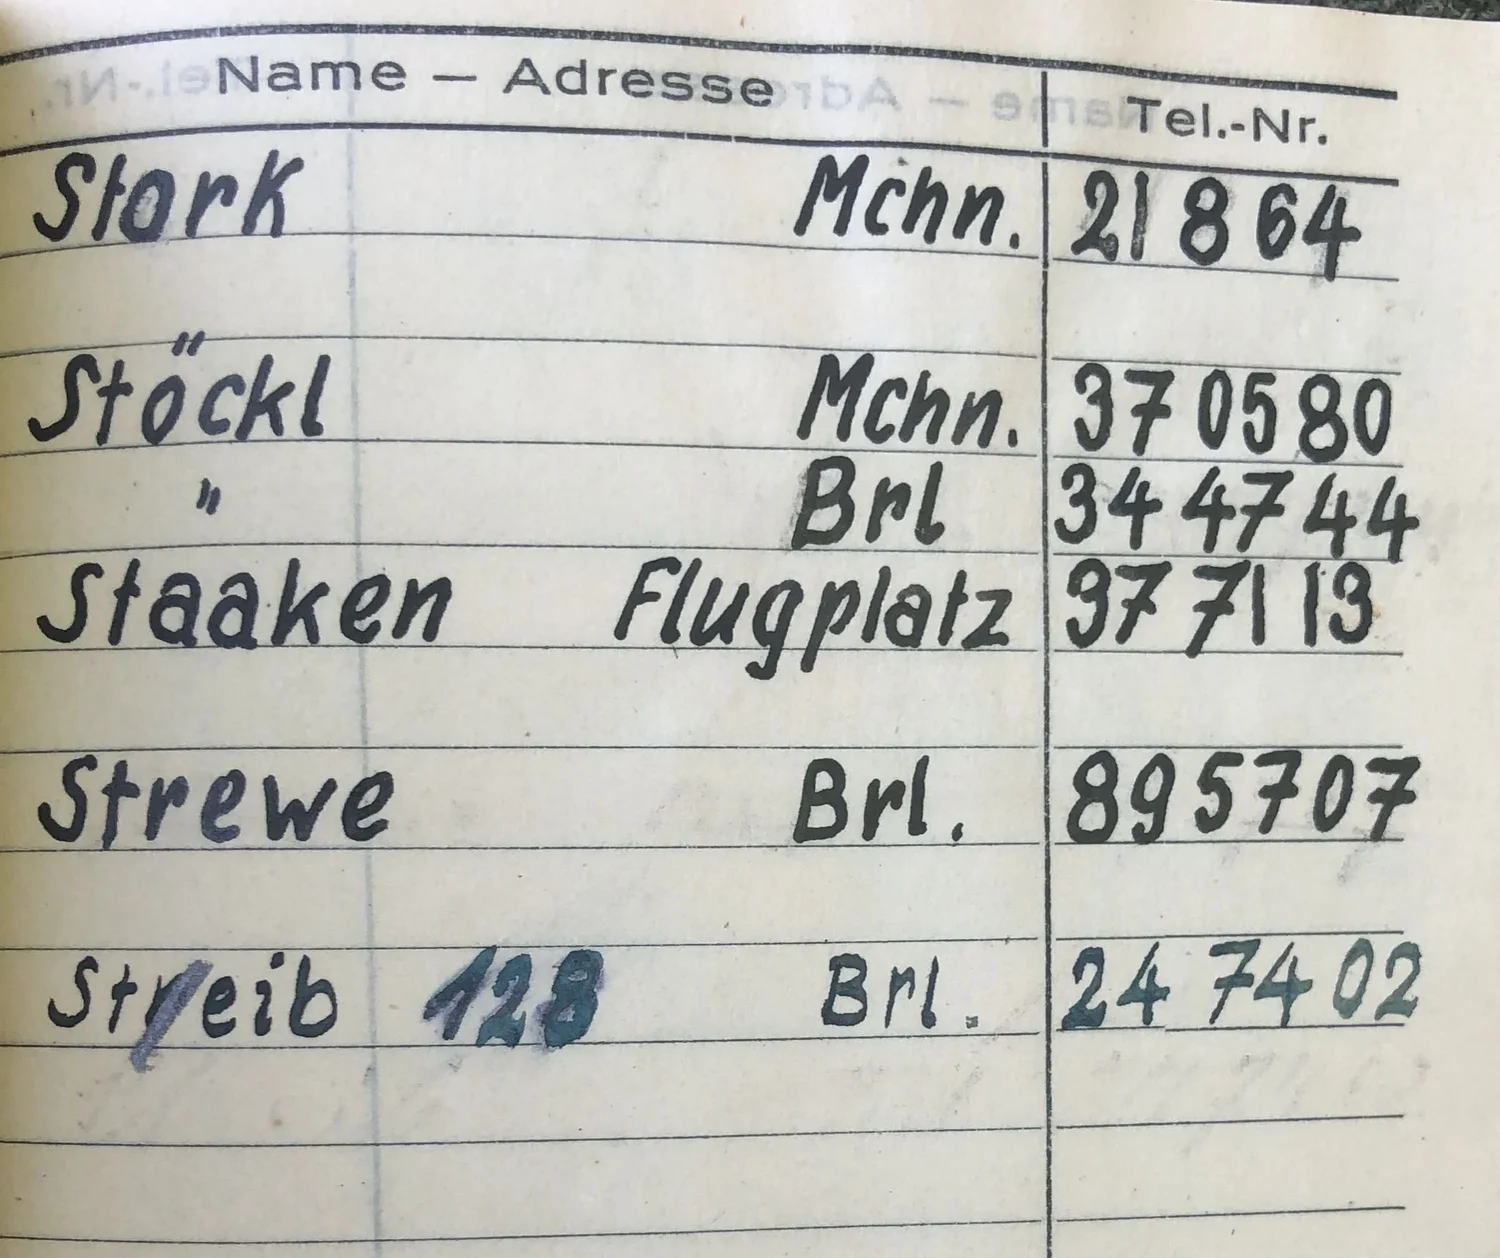 Name – Adresse Tel.-Nr.
Stork Mchn. 21 8 64
Stöckl Mchn. 37 05 80
" Brl 34 47 44
Staaken Flugplatz 37 71 13
Strewe Brl. 895707
Streib 128 Brl. 24 74 02